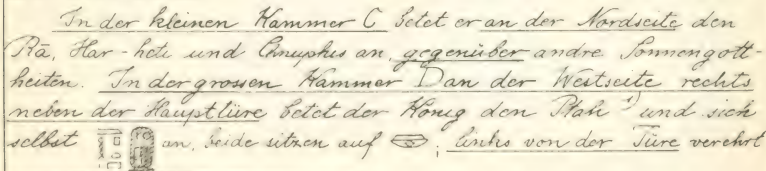 In der kleinen Kammer C betet er an der Nordseite den
Rā, Har-heti und Chnuphis an, gegenüber andre Sonnengott-
heiten. In der grossen Kammer D an der Westseite rechts
neben der Haupttüre betet der König den Ptah ¹) und sich
selbst an, beide sitzen auf ; links von der Türe verehrt